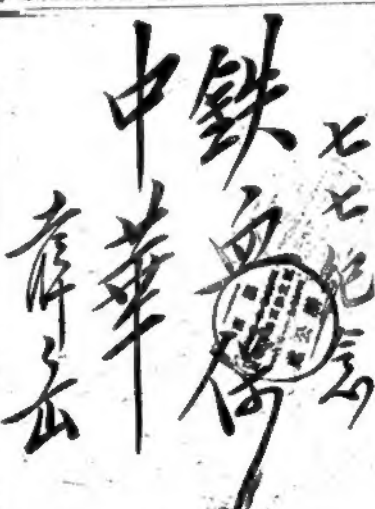 七七紀念
鉄血保
中華
薛岳